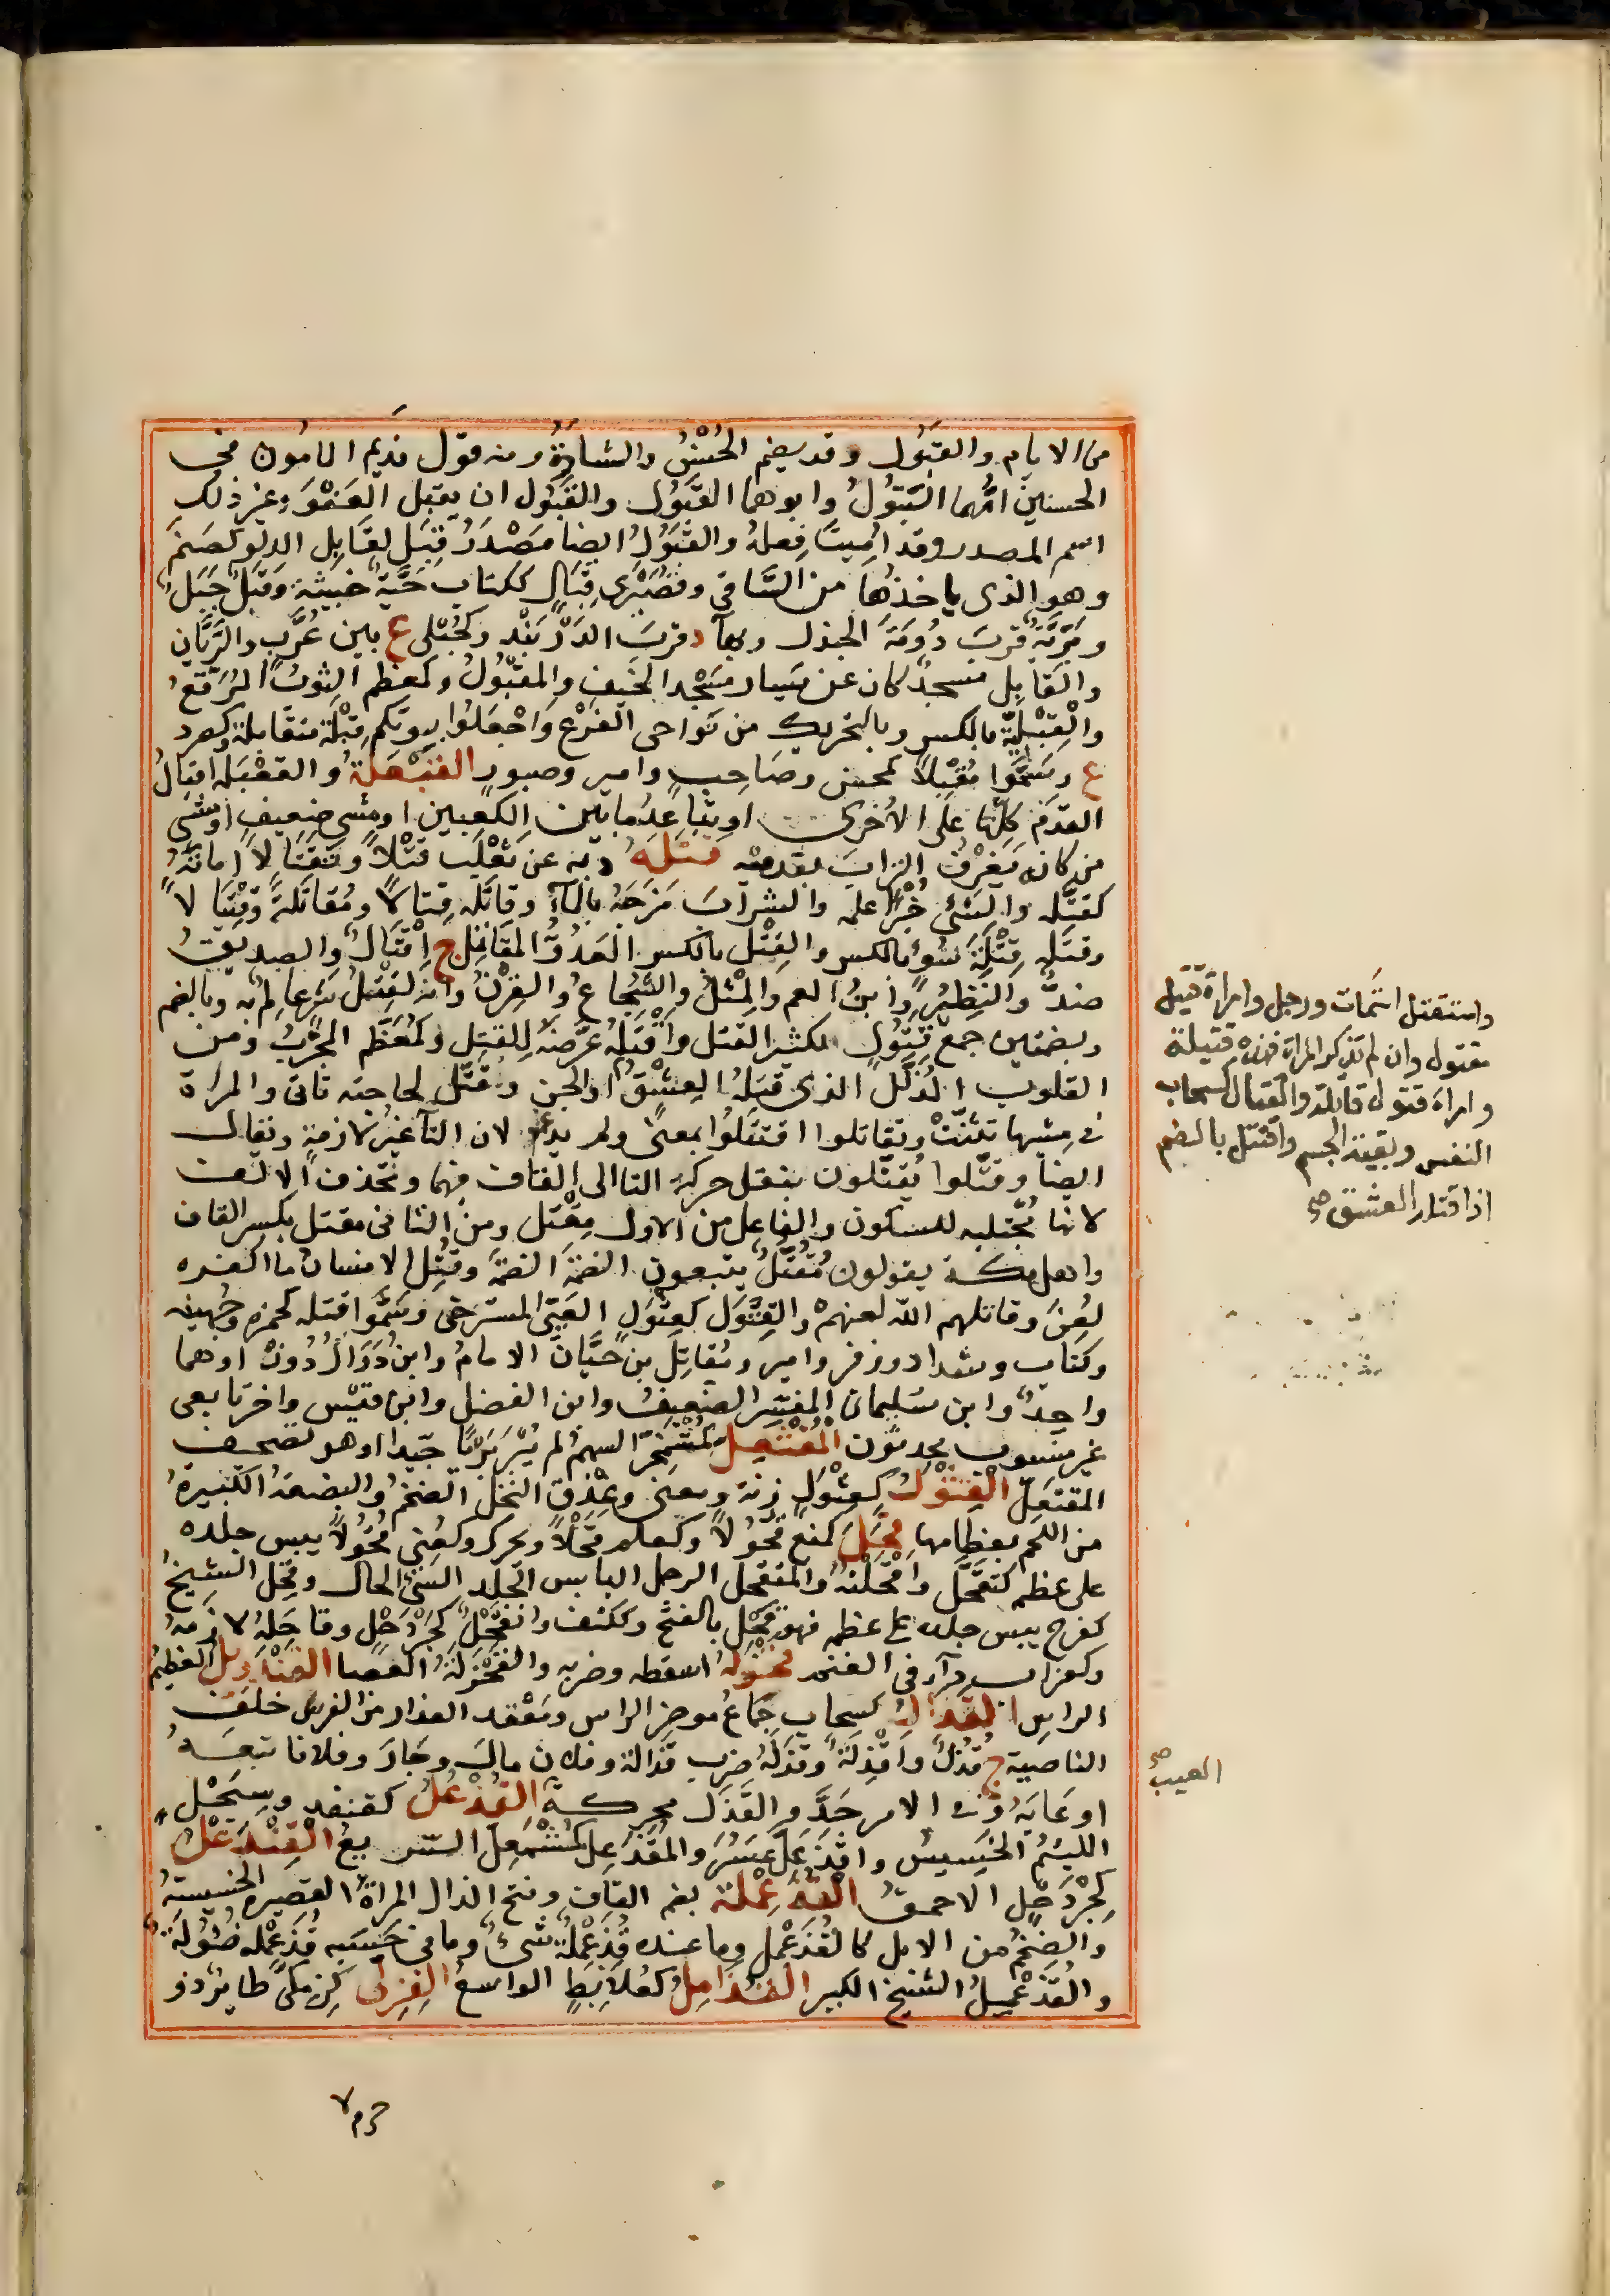 من الايام والقبول وقد يضم الحُسْنُ والشارةُ ومنه قول نديم المامون في
الحسنين امُّهما البَتُولُ وابوهما القَبُول والقَبُول ان يقبل العَفْوَ وغير ذلك
اسم المصدر وقد اُمِيتَ فِعلهُ والقَبُولُ ايضا مَصْدَرُ قَبِلَ لقَابِلِ الدلو كصَنَمٍ
وهو الذى ياخذها من السَّاقى وقُصَيْرَى قِبَالٍ ككتاب حَيَّة خبيثة وقَبَلٌ جَبَلٌ
وبَرِّيَّة قربَ دُومَةَ الجندل وبهآء د قربَ الدَرْبَنْد وكحُبْلى ع بين عُرَّبٍ والرَّيَّانِ
والقَابِل مسجدٌ كان عن يَسار مَسْجد الخَيف والمقبُولُ وكمعظم الثوبُ المُرَقّعُ
والقِبْليّةُ بالكسر وبالتحريك من نَواحى الفُرْع واجْعَلُوا بيوتكم قِبْلةً متقابلة وكصرد
ع وسَمَّوا مُقْبِلاً كمحسن وصَاحِبٍ وامير وصبور القَبْعَلةُ والقعْبَلة اقبالُ
القدَم كلّها على الاُخرى او تباعدُ ما بين الكعبين او مشى ضعيف او مَشى
من كانه يَغرِفُ الترابَ بقدميه قَتَلَهُ وبه عن ثَعْلَب قتْلاً وتَقْتَالاً اماتَهُ
كقتَّله والشئَ خُبْراً علمه والشرابَ مَزَجَهُ بالمآء وقاتَله قِتالاً ومُقاتَلةً وقِيْتَالاً
وقتَله قِتْلَةَ سُوءٍ بالكسر والقِتْل بالكسر العَدُوُّ المُقاتل ج اَقْتَالٌ والصديقُ
ضدٌّ والنَظِيرُ وابنُ العم والمِثْلُ والشُجَاعُ والقِرْنُ وانه لقِتْلُ شَرٍّ عالِمٌ به وبالضم
وبضمتين جمع قَتُولٍ لكثير القتل واَقْتَلهُ عَرَّضهُ للقتل وكمُعَظَّم المجرَّبُ ومن
القلوب المُذَلَّلُ الذى قتلهُ العِشْقُ او الجن وتقتَّل لحاجته تَاَتَّى والمراة
فى مِشيتها تثنّتْ وتقاتلوا اقتتَلُوا بمعنىً ولم يدغم لان التآء غيرُ لازمةٍ ويقال
ايضا وقتَّلوا يُقتّلون بنقل حركة التا الى القاف فيهما وتُحْذَف الالف
لانها مُجْتلبه للسكون والفاعل من الاول مِقْتل ومن الثانى مقتل بكسر القاف
واهل مكة يقولون مُقُتّل يتبعون الضمّةَ الضمّةَ وقُتِلَ الانسانُ ما اكفره
لُعِنَ وقاتلهم الله لعنهمْ والقِثْوَل كعِثْوَلٍ العَيىّ المسترخى وسَمَّوا قتله كحمزه وجُهينه
وكتاب وشداد وزفر وامير ومُقاتِل بن حَيَّان الامامُ وابن دَوَالْ دُوزْ اوهما
واحِدٌ وابن سُليمان المفسّر الضعيفُ وابن الفضل وابن قيْس واخر تابعى
غير منسوب محدثون المُقْثَعِلُّ كمُشْمَخِرّ السهم لم يُبْرَ بَرْياً جَيّدا او هو تصحيف
المقتَعِلّ القِثْوَلُّ كعِثْوَلٍ زنة ومعنى وعِذْق النخل الضخمُ والبضعةُ الكبيرةُ
من اللحم بعِظامِها قَحَلَ كمنع قُحُولاً وكعلم قَحَلاً ويحرك وكعُنى قُحُولاً يبس جلده
على عظمه كتقحَّل واقْحَلْتهُ والمتقحل الرجل اليابس الجلد السَيّئ الحال وقَحِلَ الشيخُ
كفرح يبس جلده على عظمه فهو قَحْل بالفتح وككتف وانقَحْلٌ كجِرْدَحْلٍ وقاحَلهُ لازَمهُ
وكغراب دآءٌ فى الغنم قَحْزَلهُ اسقطه وضربه والقَحْزَلَةُ العَصا القَنْدَويلُ العظيمُ
الراسِ القَذالُ كسحاب جِماعُ موخر الراس ومَعْقد العذار من الفرس خلفَ
الناصية ج قُذُلٌ واَقْذِلَةٌ وقذَلَهُ ضرب قَذالهُ وفلان مالَ وجَارَ وفلانا تبعَهُ
اوعَابَهُ وفى الامر جَدَّ والقَذَل محركة القُذْعُلُ كقنفد وسِبَحْلٍ
اللئيمُ الخَسِيسُ واقذَعَلّ عَسُرَ والمُقذَعِلّ كمُشْمَعِلّ السّريعُ القِنْذَعْلُ
كِجرْدَحْلٍ الاحمق القُذَعْمِلة بضم القاف وفتح الذال المراةُ القصيرهُ الخسيسةُ
والضخمُ من الابل كالقُذَعْمِل وما عنده قُذَعْمِلةٌ شئٌ وما فى حَسَبِه قُذَعْمِله ضُئُولَةٌ
والقُذَعْمِيلُ الشيخ الكبير القُذَامِلُ كعُلابِطٍ الواسعُ القِرِلَّى كزِمكَّى طايرٌ ذو
حزم لا
واستقتل استَمات ورجل وامراة قتيل
مقتول وان لم تذكر المراة فهذه قتيلة
وامراة قتول قاتلة والقتال كسحاب
النفس وبقية الجسم واقتتل بالضم
اذا قتله العشق صح
العيب صح